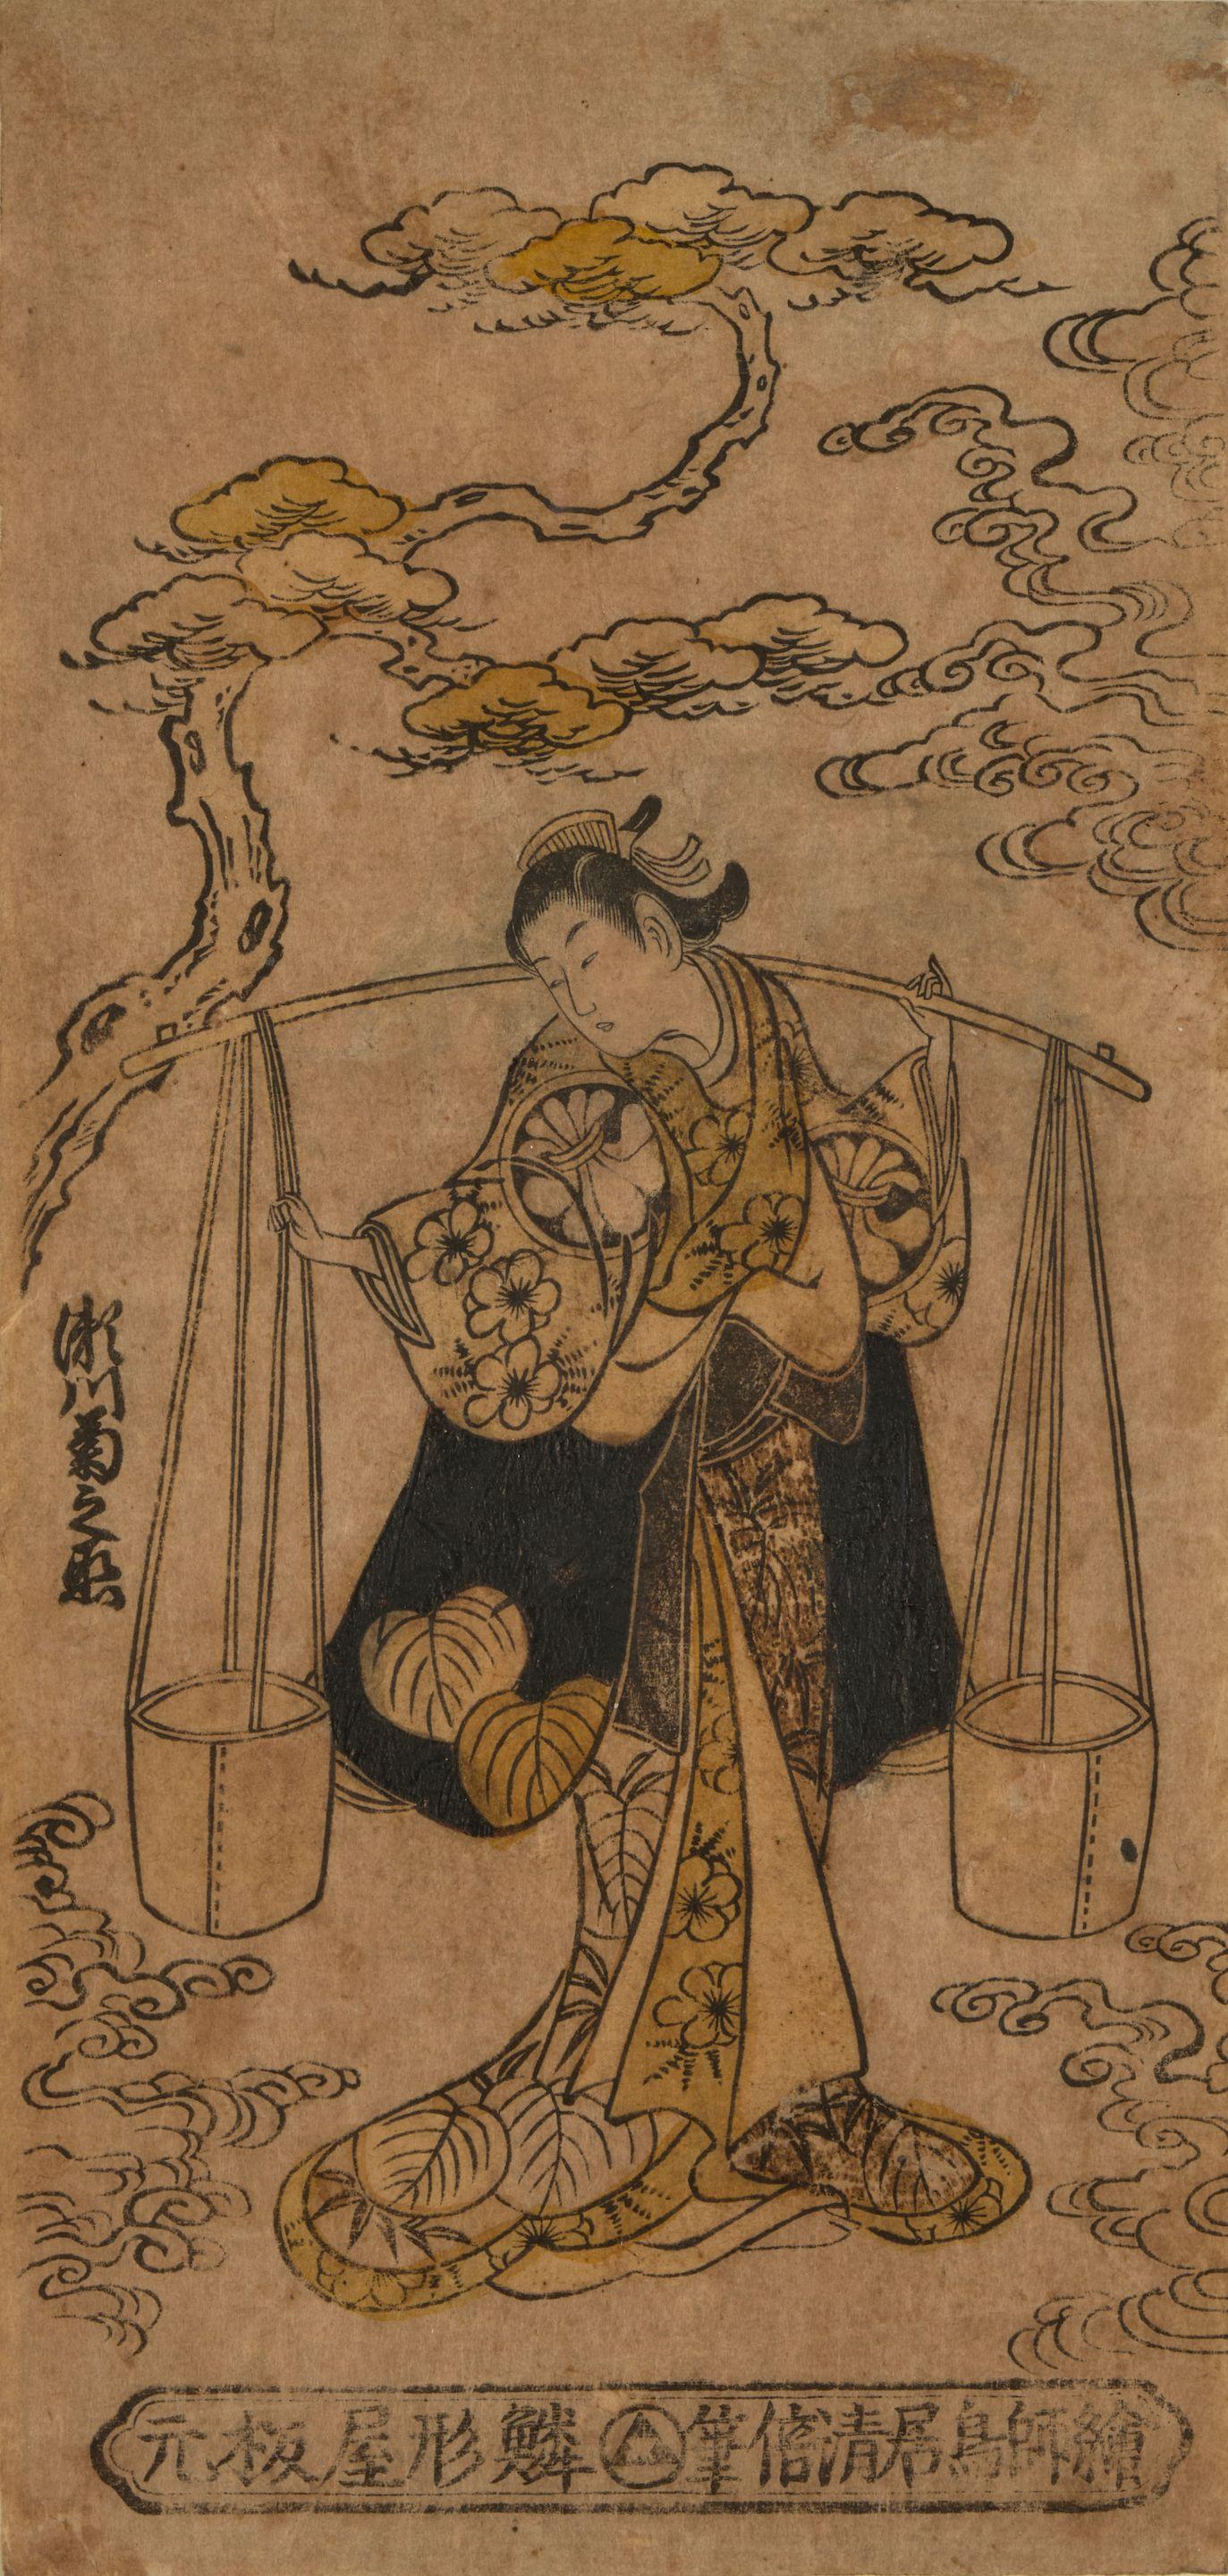 瀬川菊之丞
繪師鳥居清信筆
鱗形屋板元